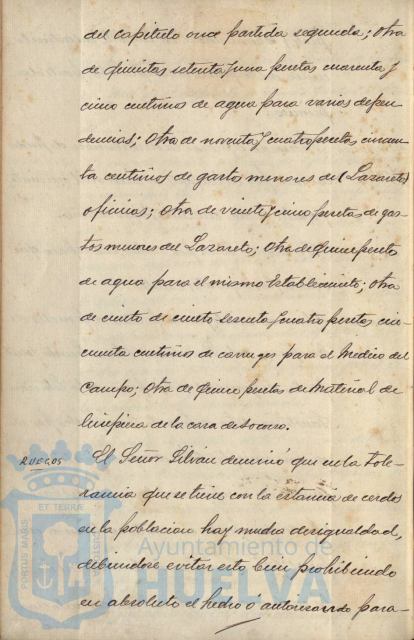 del capitulo once partida segunda; Otra
de quinientas setenta y una pesetas cuarenta y
cinco centimos de agua para varias depen-
dencias; Otra de noventa y cuatro pesetas cincuen-
ta centimos de gastos menores de (Lazareto)
oficinas; Otra de veinte y cinco pesetas de gas-
tos menores del Lazareto; Otra de quince pesetas
de agua para el mismo Establecimiento; Otra
de ciento de ciento sesenta y cuatro pesetas cin-
cuenta centimos de carruages para el Medico del
Campo; Otra de quince pesetas de Material de
limpieza de la casa de socorro.
RUEGOS
El Señor Silvan denunció que en la tole-
rancia que se tiene con la estancia de cerdos
en la poblacion hay mucha desigualdad,
debiendose evitar esto bien prohibiendo
en absoluto el hecho ó autorizando para-
PORTUS MARIS
ET TERRÆ
CUSTODIA
Ayuntamiento de
HUELVA